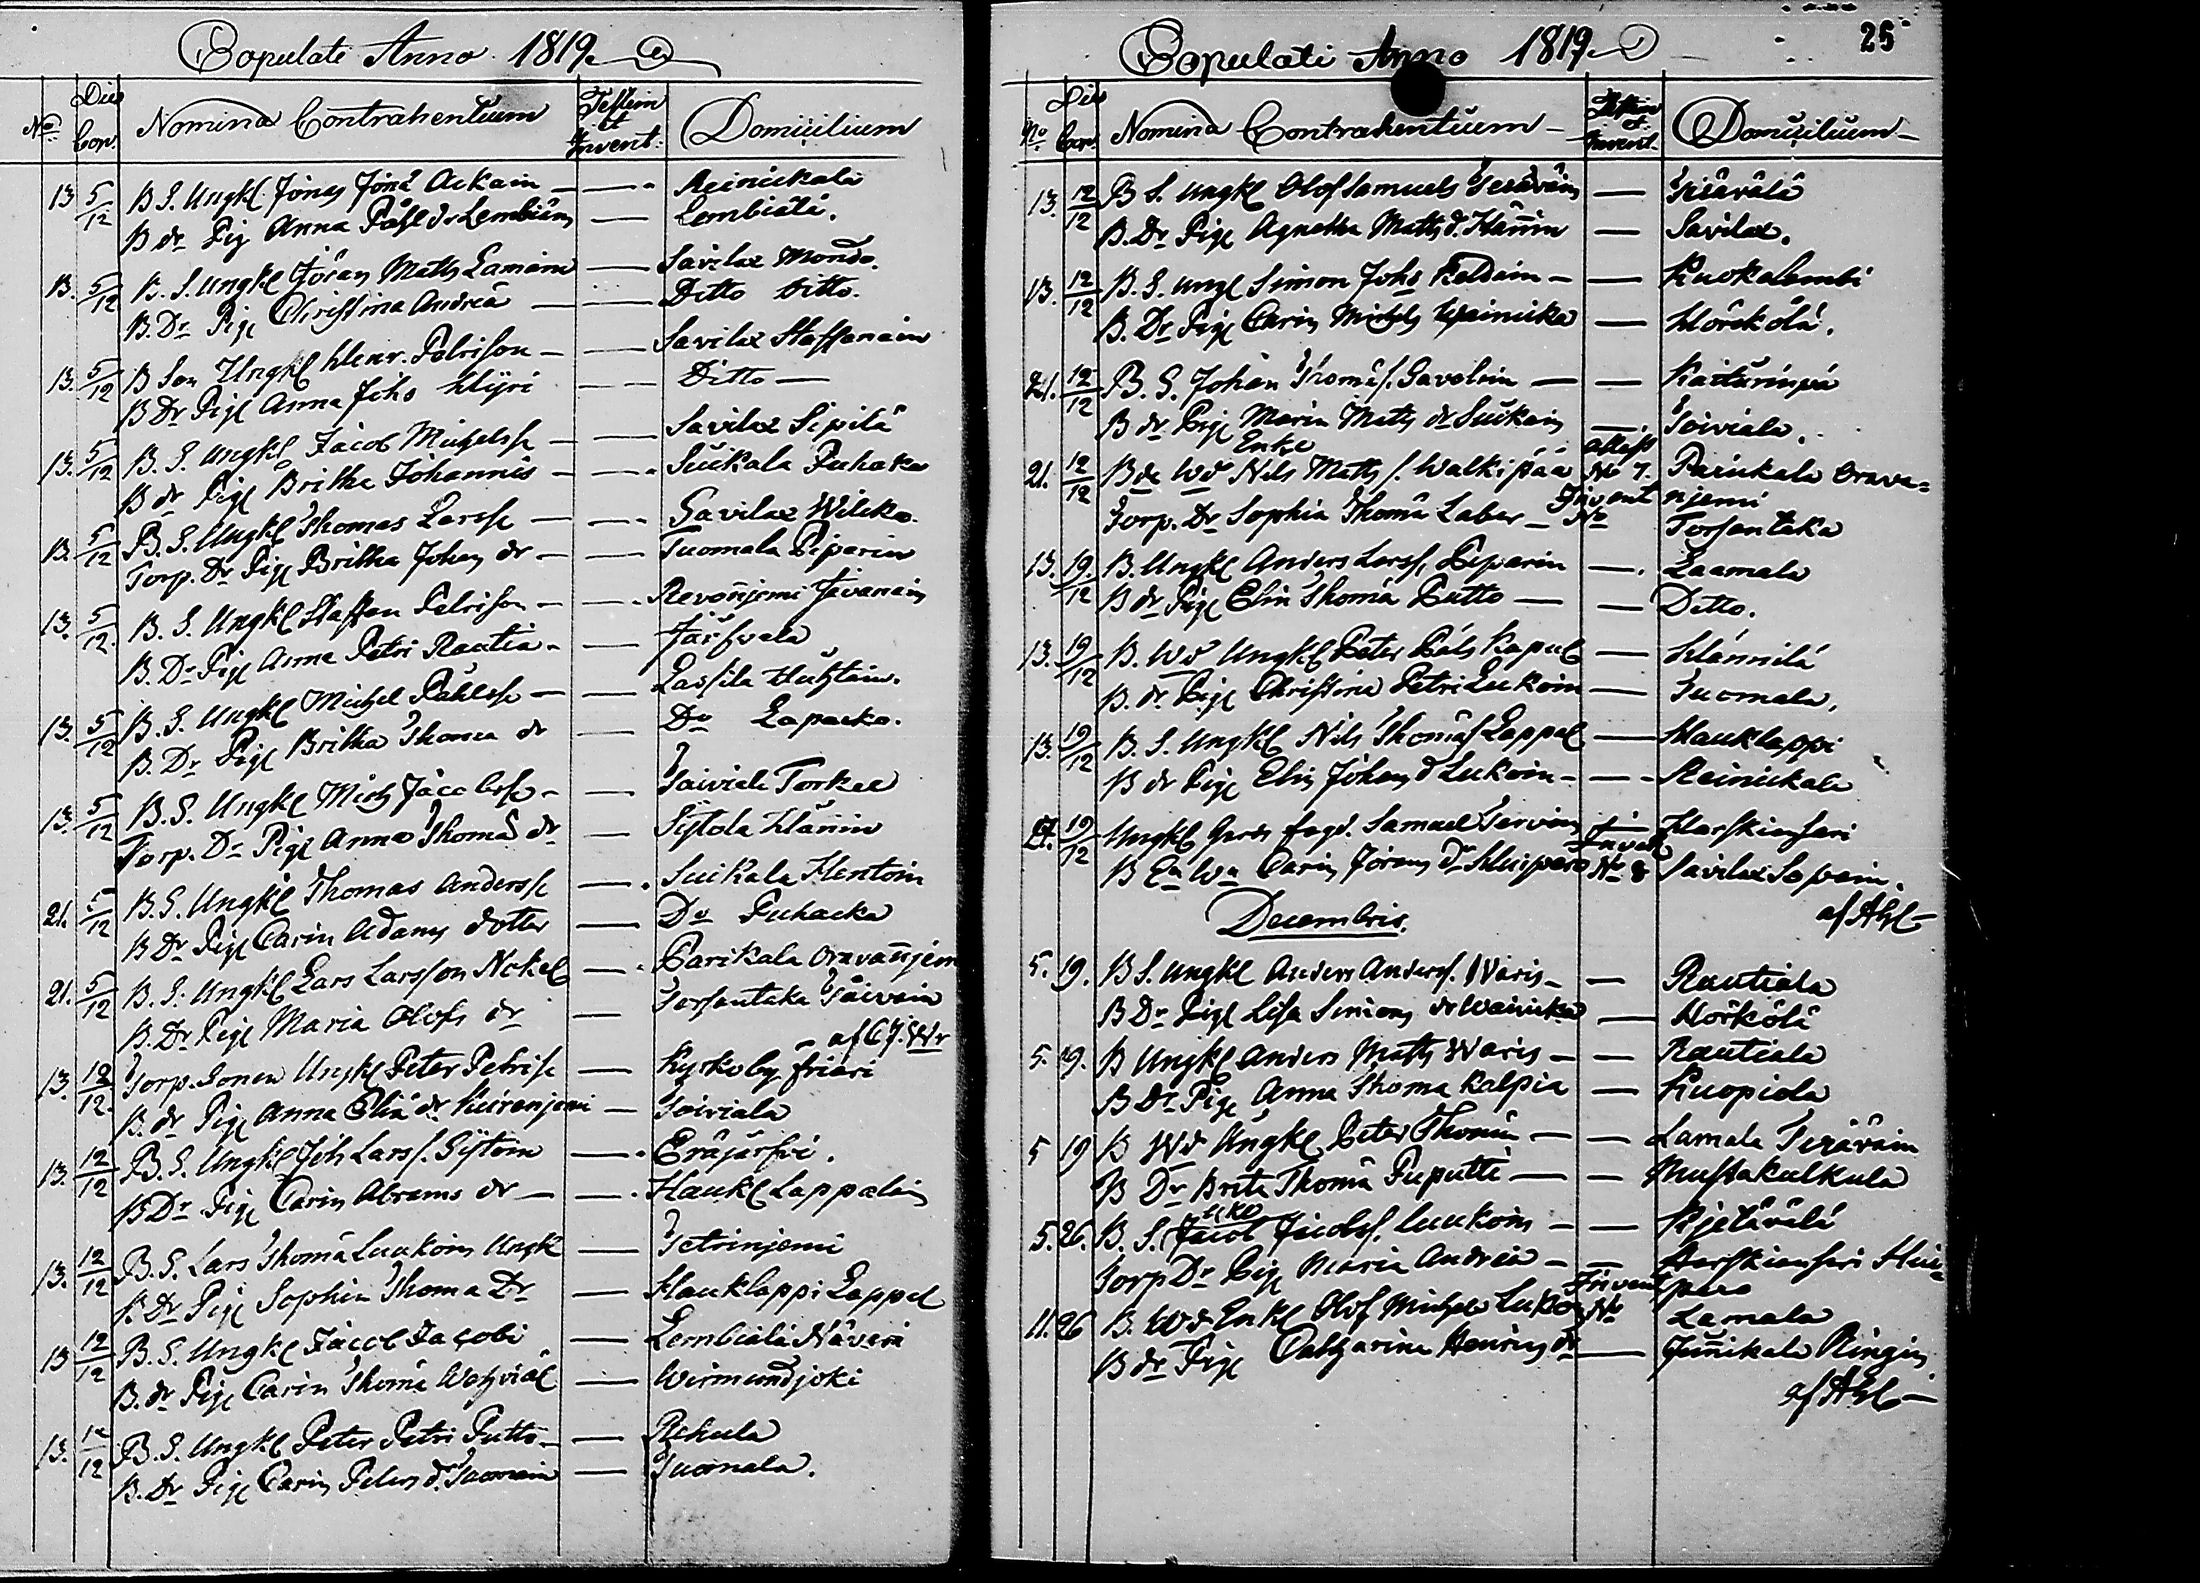 Copulati Anno 1819.
No. Die Cop. Nomina Contrahentium Testim et Invent: Domicilium
13 5/12 B S. Ungkl Jöns Jöns Ackain — — Reinickala
B dr Pig Anna Påhl dr Lembiäin — Lembiälä.
13. 5/12 B. S. Ungkl Jöran Matts Lamain — Savilax Mondo.
B. Dr Pige Christina Andreä — Ditto Ditto.
13. 5/12 B Son Ungkl Henr. Petrison — — Savilax Staffanain
B Dr Pige Anna Johs Hyri — — Ditto —
13. 5/12 B. S. Ungkl Jacob Michelss — — Savilax Sipilä
B dr Pige Britha Johannis — — Suikala Puhaka
13. 5/12 B. S. Ungkl Thomas Larss — — Savilax Wilska.
Torp. Dr Pige Britha Johans dr — — Tuomala Piparin
13. 5/12. B. S. Ungkl Staffan Petrison — — Revonnjemi Jävanain
B. Dr Pige Anna Petri Rautia — — Järfvela
13. 5/12 B. S. Ungkl Michel Påhlss — — Lassila Huhtain.
B. Dr Pige Britha Thomæ dr — Do Lapacko.
13. 5/12 B. S. Ungkl Mich Jacobss — — Toiviala Torkel
Torp. Dr Pige Anna Thomæ dr — Sijtola Hännin
21. 5/12 B. S. Ungkl Thomas Anderss — Suikala Kentoin
B Dr Pige Carin Adams dotter — Do Puhacka
21. 5/12 B. S. Ungkl Lars Larsson Nokel — Parikala Oravannjemi
B. Dr Pige Maria Olofs dr — Torsantaka Täivain
af C J. Wr
13. 12/12. Torp. Sonen Ungkl Peter Petriss — Kyrkoby friari
B. dr Pige Anna Eliä dr Kuirenjemi — Toiviala
13. 12/12 B. S. Ungkl Joh Larss. Sijtoin — Eräjärfvi.
B Dr Pige Carin Abrams dr — — Haukl Lappalain
13. 12/12 B. S. Lars Thomä Luukoin Ungk — Tetrinjemi
B. Dr Pige Sophia Thoma Dr — Hauklappi Lappal
13 12/12 B. S. Ungkl Jacob Jacobi — Lembiälä Näverä
B. dr Pige Carin Thomä Wehviäl — Wirmundjoki
13. 12/12 B. S. Ungkl Peter Petri Putto — — Rekula
B. Dr Pige Carin Peters d. Tuomain — Tuomala.
Copulati Anno 1819 25
No Die Cop. Nomina Contrahentium — Testim et. Invent. Domicilium —
13. 12/12 B S. Ungkl Olof Samuels Teräväin — Terävälä
B. Dr Pige Agnetha Matts d. Hännin — Savilax.
13. 12/12 B. S. Ungl Simon Johs Keldain — — Kuokalambi
B. Dr Pige Carin Michels Wainicka — Hörckölä.
21. 12/12 B. S. Johan Thomæs. Savolain — — Kaiturinpä
B dr Pige Maria Matts dr Suikain — Toiviala.
21. 12/12 B de Wd Enkl Nils Matts s. Walkipää attest No 7. Parikala Orava=
Torp. Dr Sophia Thomä Labar — Invent No njemi
Torsantaka
13. 19./12 B. Ungkl Anders Larss, Peparin — Laamala
B dr Pige Elin Thomä Putto — — Ditto.
13. 19/12 B. Wd Ungkl Peter Påls Kapul — Hännilä
B. dr Pige Christina Petri Lukoin — Tuomala.
13. 19/12 B. S. Ungkl Nils Thomäs Lappal — Hauklappi
B dr Pige Elin Johans d Lukoin — — Reinickala
27. 19/12 Ungkl Gards fogd. Samuel Tarvoin — Harskiensari
B En Wn Carin Jörans dr Huipero Invent No 8 Savilax Sopain.
af Ahl —
Decembris.
5. 19. B S. Ungkl Anders Anderss. Waris — — Rautiala
B Dr Pige Lisa Simons dr Wainicka — Hörkölä
5. 19. B Ungkl Anders Matts Waris — — Rautiala
B Dr Pige Anna Thoma Kalpia — Kuopiala
5 19 B Wd Ungkl Peter Thomä — — Lamala Teräväin
B Dr Brita Thomä Puputti — — Mustakulkula
5. 26. B. S. Jacob Jacobs. Luukoin — — Kjetävälä
Torp Dr Pige Maria Andreä — — Harskiensari Hui=
pero
11. 26 B. Wd Enkl Olof Michels Lukoin Invent No Lamala
B dr Pige Catharina Henrics dr — Junnikala Ringin
af Ahl —